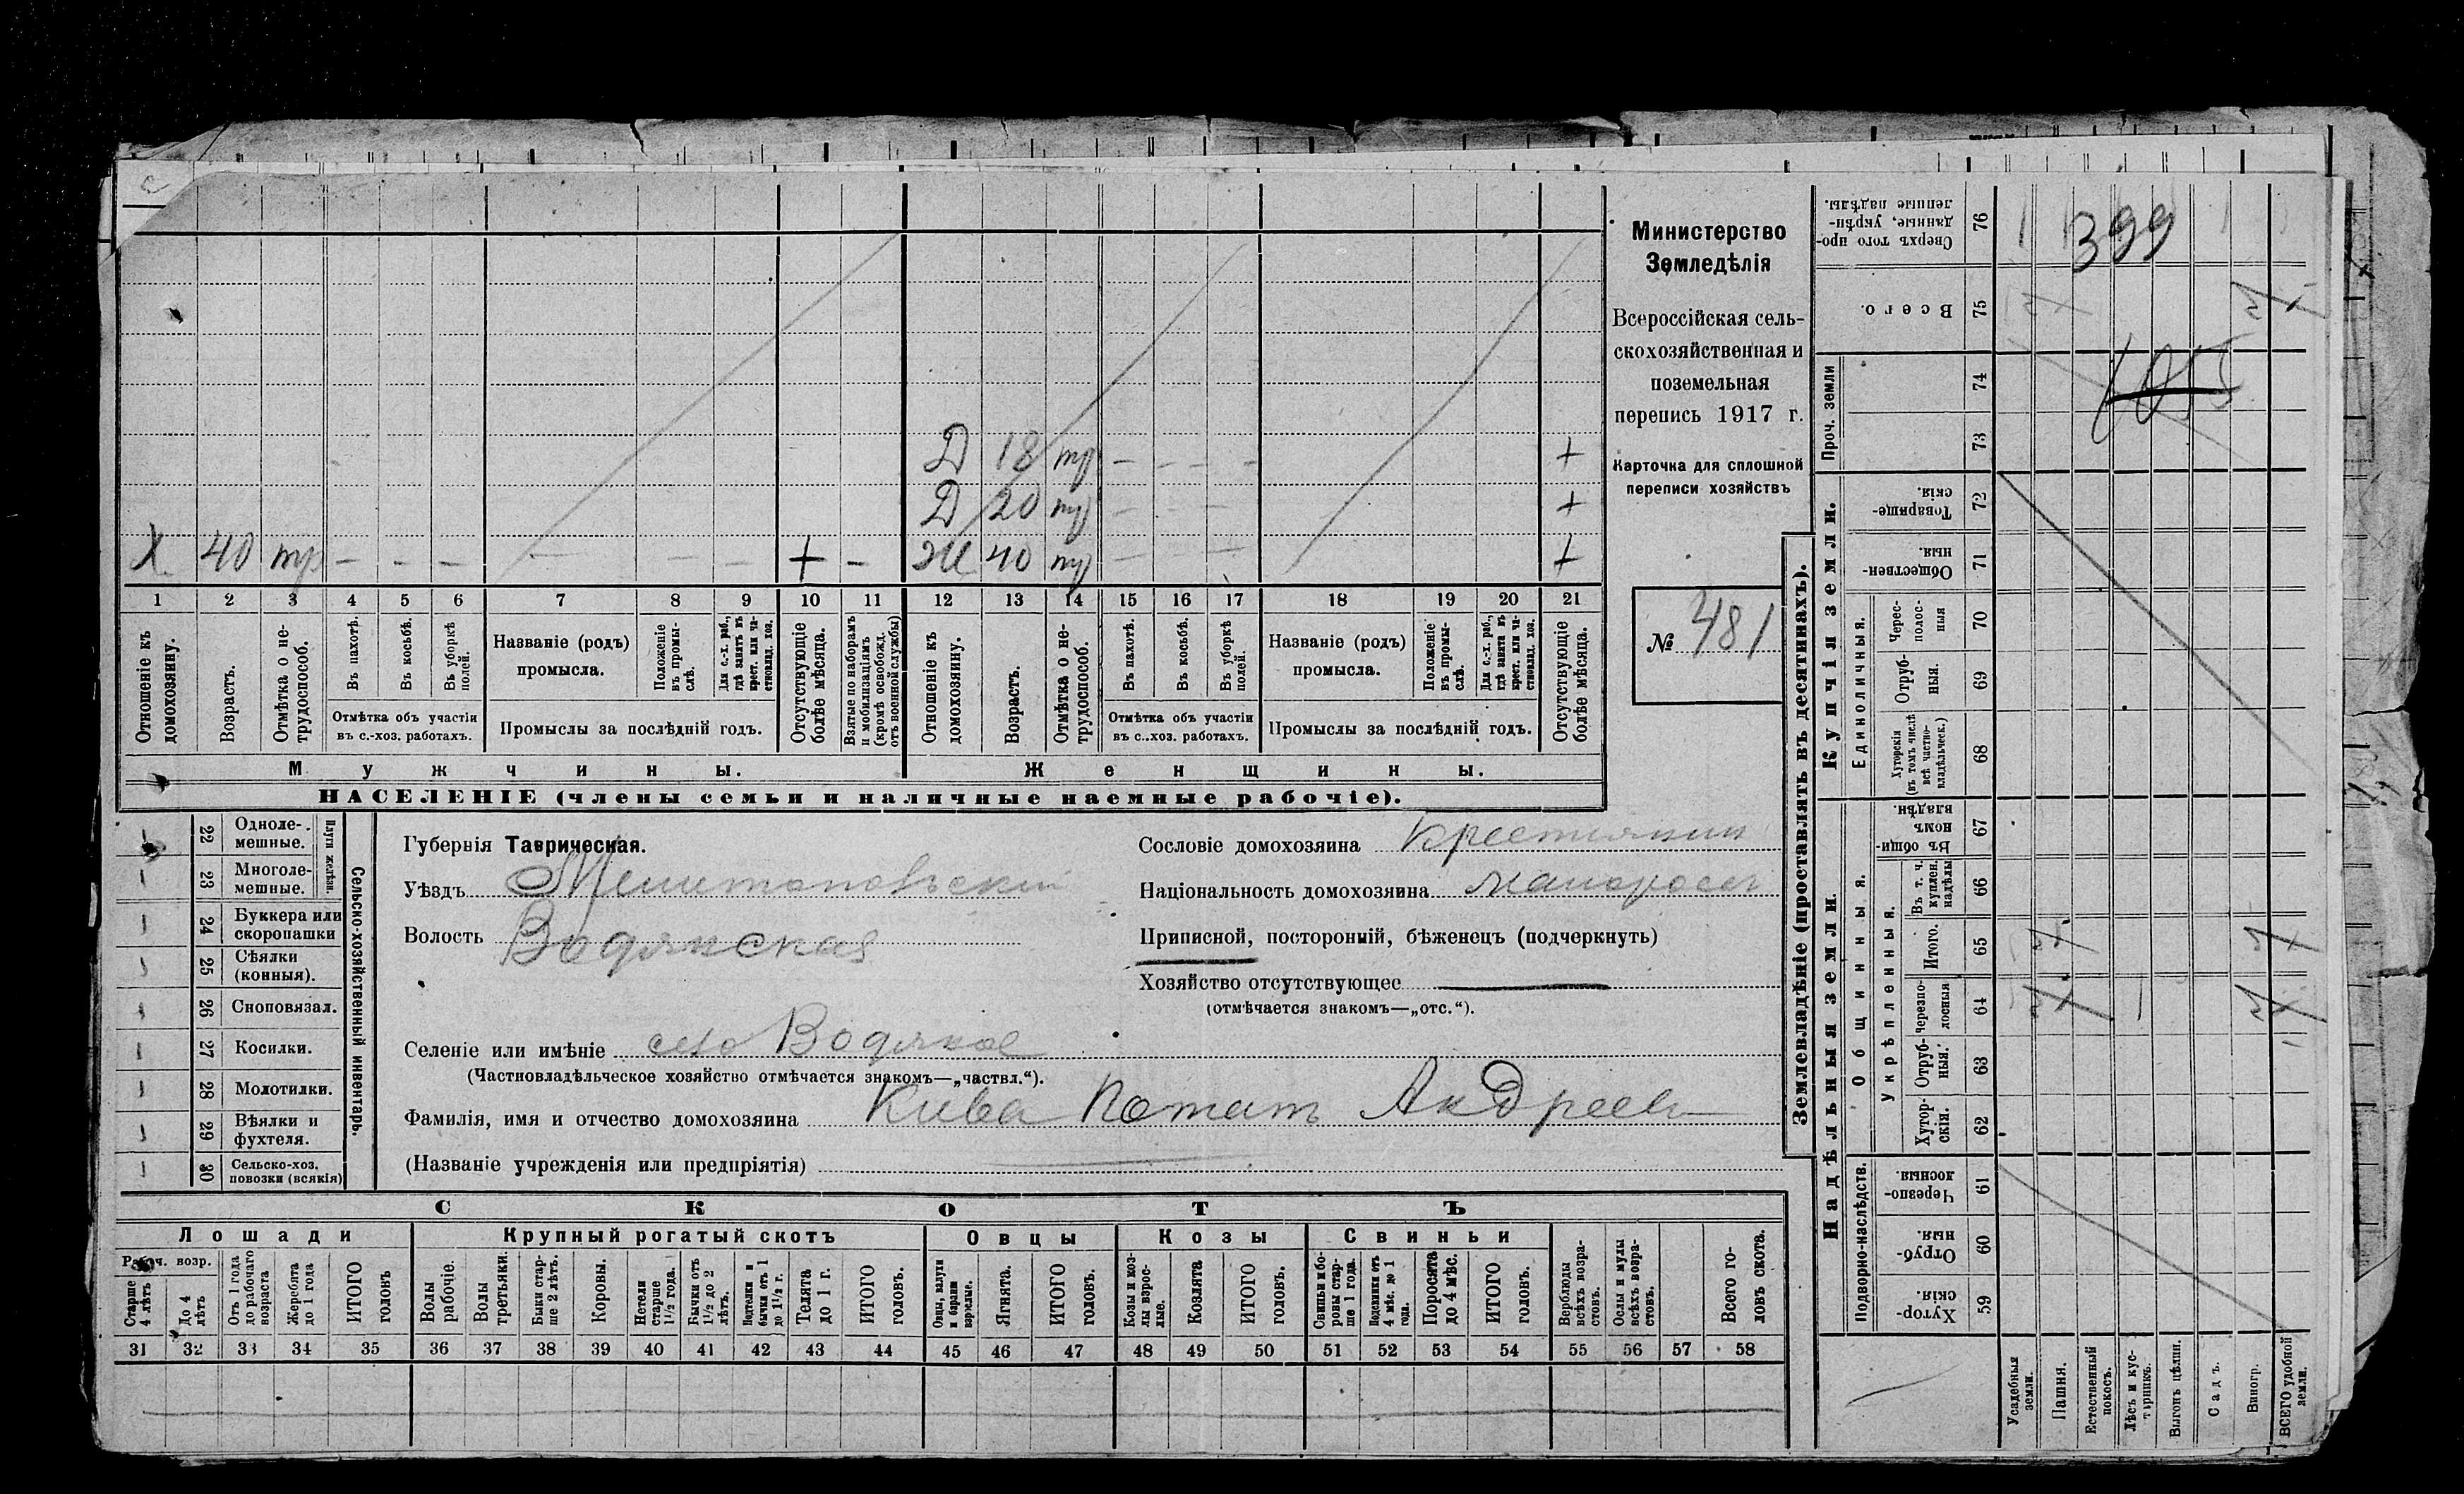 Министерство
Земледѣлія
Всероссійская сель-
скохозяйственная и
поземельная
перепись 1917 г.
Карточка для сплошной
переписи хозяйствъ
№ 481
Д 18 тр — — — — +
Д 20 тр — — +
Х 40 тр — — — — — — + — Ж 40 тр — — — +
1 2 3 4 5 6 7 8 9 10 11 12 13 14 15 16 17 18 19 20 21
Отношеніе къ домохозяину.
Возрастъ.
Отмѣтка о не-трудоспособ.
Въ пахотѣ.
Въ косьбѣ.
Въ уборкѣ полей.
Отмѣтка объ участіи
въ с.-хоз. работахъ.
Названіе (родъ)
промысла.
Положеніе въ промы-слѣ.
Для с.-х. раб., гдѣ занятъ въ крест. или ча-стновлад. хоз.
Промыслы за послѣдній годъ.
Отсутствующіе болѣе мѣсяца.
Взятые по наборамъ и мобилизаціямъ (кромѣ освобожд. отъ военной службы)
Отношеніе къ домохозяину.
Возрастъ.
Отмѣтка о не-трудоспособ.
Въ пахотѣ.
Въ косьбѣ.
Въ уборкѣ полей.
Отмѣтка объ участіи
въ с..хоз. работахъ.
Названіе (родъ)
промысла.
Положеніе въ промы-слѣ.
Для с.-х. раб., гдѣ занята въ крест. или ча-стновлад. хоз.
Промыслы за послѣдній годъ.
Отсутствующіе болѣе мѣсяца.
Мужчины. Женщины.
НАСЕЛЕНІЕ (члены семьи и наличные наемные рабочіе).
Сельско-хозяйственный инвентарь.
Плуги желѣзн.
22 Одноле-мешные.
23 Многоле-мешные.
24 Буккера или скоропашки
25 Сѣялки (конныя).
26 Сноповязал.
27 Косилки.
28 Молотилки.
29 Вѣялки и фухтеля.
30 Сельско-хоз. повозки (всякія)
Губернія Таврическая.
Уѣздъ Мелитопольскій
Волость Водянская
Селеніе или имѣніе село Водяное
(Частновладѣльческое хозяйство отмѣчается знакомъ—„частвл.“).
Фамилія, имя и отчество домохозяина Кива Потап Андреев
(Названіе учрежденія или предпріятія)
Сословіе домохозяина крестьянин
Національность домохозяина малоросъ
Приписной, посторонній, бѣженецъ (подчеркнуть)
Хозяйство отсутствующее
(отмѣчается знакомъ—„отс.“).
СКОТЪ
Лошади Крупный рогатый скотъ Овцы Козы Свиньи
Рабоч. возр.
Старше 4 лѣтъ
До 4 лѣтъ
Отъ 1 года до рабочаго возраста
Жеребята до 1 года
ИТОГО головъ
Волы рабочіе.
Волы третьяки.
Быки стар-ше 2 лѣтъ.
Коровы.
Нетели старше 1½ года.
Бычки отъ 1½ до 2 лѣтъ.
Подтелки и бычки отъ 1 до 1½ г.
Телята до 1 г.
ИТОГО головъ.
Овцы, валухи и бараны взрослые.
Ягнята.
ИТОГО головъ.
Козы и коз-лы взрос-лые.
Козлята
ИТОГО головъ.
Свиньи и бо-ровы стар-ше 1 года.
Подсвинки отъ 4 мѣс. до 1 года.
Поросята до 4 мѣс.
ИТОГО головъ.
Верблюды всѣхъ возра-стовъ.
Ослы и мулы всѣхъ возра-стовъ.
Всего го-ловъ скота.
31 32 33 34 35 36 37 38 39 40 41 42 43 44 45 46 47 48 49 50 51 52 53 54 55 56 57 58
Землевладѣніе (проставлять въ десятинахъ).
Сверхъ того про-данные, укрѣп-ленные надѣлы. 76
399
Всего. 75
Проч. земли
74
73
105
Купчія земли.
Товарище-скія. 72
Обществен-ныя. 71
Единоличныя.
Черес-полос-ныя 70
Отруб-ныя. 69
Хуторскія (въ томъ числѣ всѣ частно-владѣльческ.) 68
Надѣльныя земли.
Общинныя.
Въ общи-номъ владѣн. 67
Укрѣпленныя.
Въ т. ч. куплен. надѣлы 66
Итого. 65
Черезпо-лосныя 64
Отруб-ныя. 63
Хутор-скія. 62
Подворно-наслѣдств.
Черезпо-лосныя 61
Отруб-ныя. 60
Хутор-скія. 59
Усадебныя земли.
Пашня.
Естественный покосъ.
Лѣсъ и кус-тарникъ.
Выгонъ цѣлин.
Садъ.
Виногр.
ВСЕГО удобной земли.